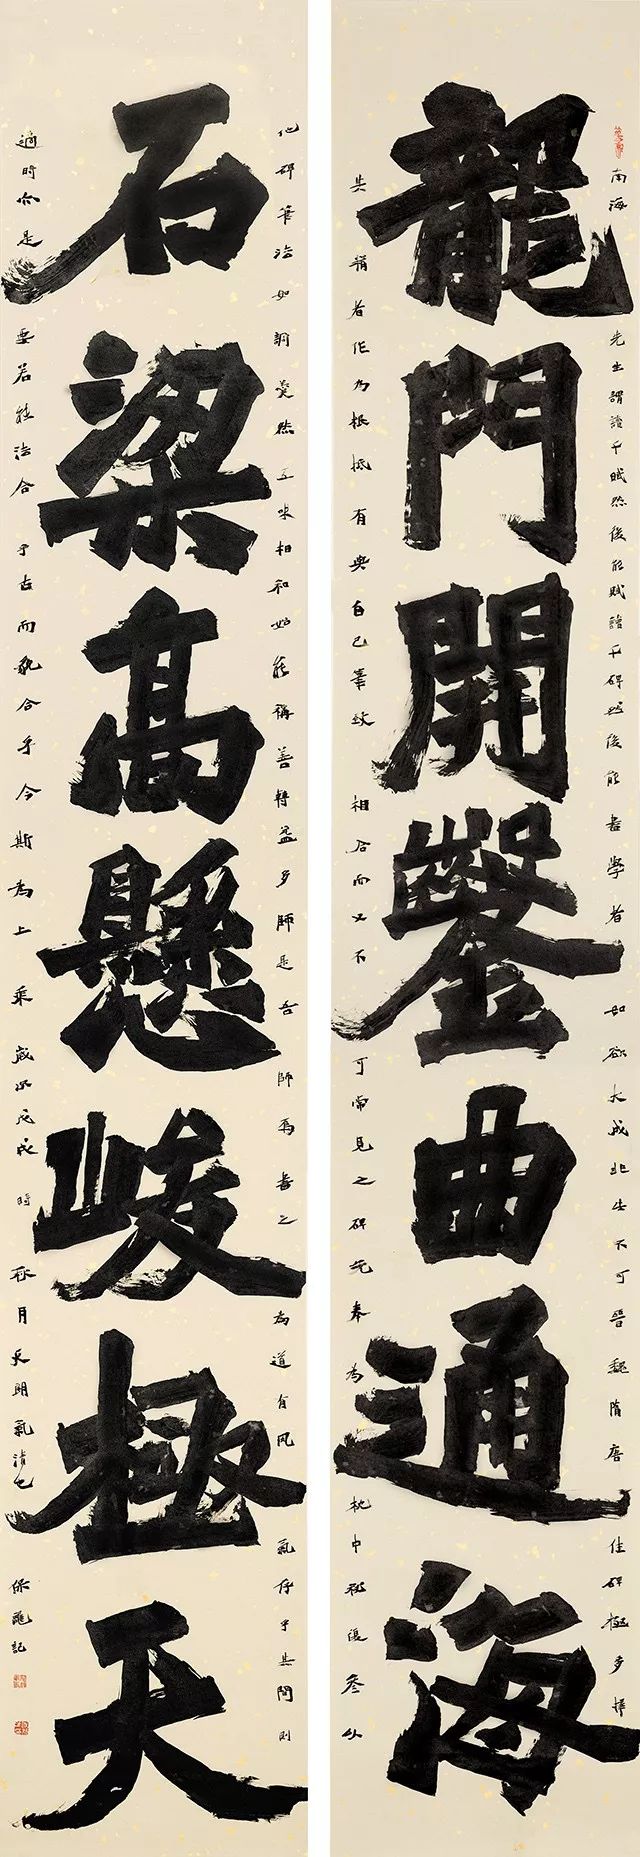 龍門開鑿曲通海
石梁高懸峻極天
南海先生謂讀千賦然後能賦讀千碑然後能書學者如欲大成非此不可晉魏隋唐佳碑極多擇
其精者作為根抵有與自己筆致相合而又不可常見之碑先奉為枕中秘復參以
他碑筆法如調羹然五味相和始能稱善轉益多師是吾師焉書之為道有風氣存乎其間則
適時亦是要若能法合于古而貌合乎今斯為上乘歲次戊戌時秋月天朗氣清也記